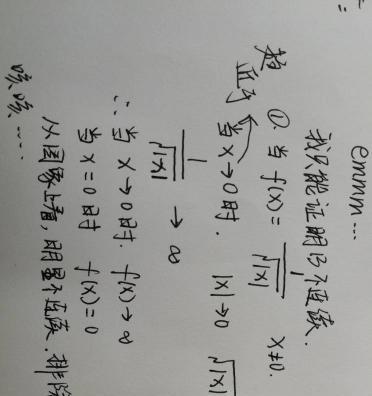 emmm...
我只能证明了不连续.
①. 当 f(x) = 1/√|x| x≠0.
趋近于
当 x→0时. |x|→0 √|x|
1/√|x| → ∞
∴ 当 x→0时. f(x)→∞
当 x=0时 f(x)=0
从图象上看,明显不连续.排除
咳咳.....